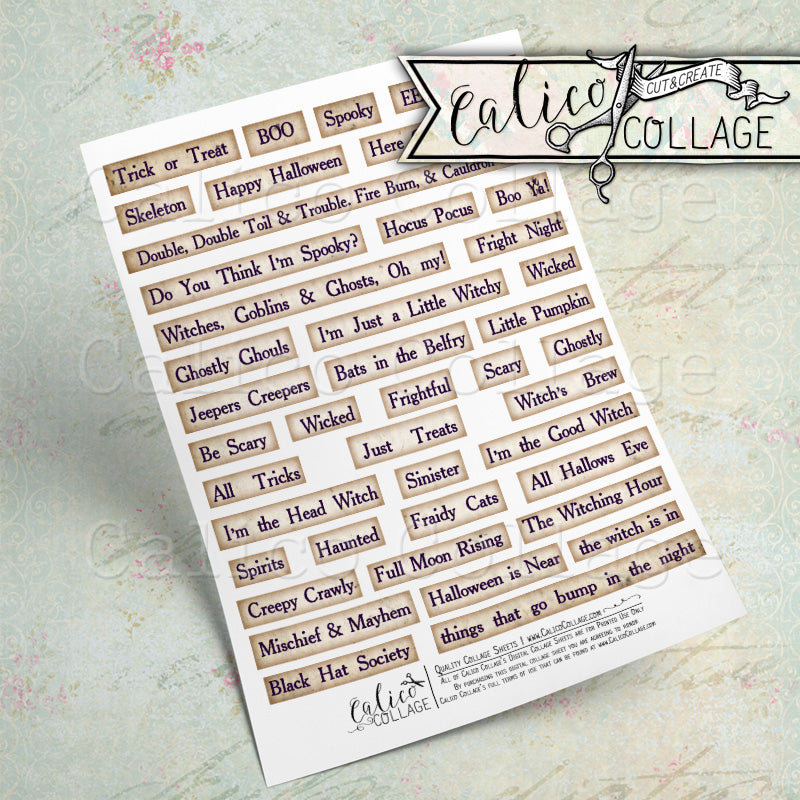 Calico
COLLAGE
CUT & CREATE
Trick or Treat BOO Spooky
Skeleton Happy Halloween Here
Double, Double Toil & Trouble, Fire Burn, & Cauldron
Hocus Pocus Boo Ya!
Do You Think I'm Spooky? Fright Night
Witches, Goblins & Ghosts, Oh my! Wicked
Ghostly Ghouls I'm Just a Little Witchy Little Pumpkin
Jeepers Creepers Bats in the Belfry Scary Ghostly
Be Scary Wicked Frightful Witch's Brew
All Tricks Just Treats I'm the Good Witch
I'm the Head Witch Sinister All Hallows Eve
Spirits Haunted Fraidy Cats The Witching Hour
Creepy Crawly. Full Moon Rising the witch is in
Mischief & Mayhem Halloween is Near
Black Hat Society things that go bump in the night
Calico
COLLAGE
Quality Collage Sheets | www.CalicoCollage.com
All of Calico Collage's Digital Collage Sheets are for Printed Use Only
By purchasing this digital collage sheet you are agreeing to honor
Calico Collage's full terms of use that can be found at www.CalicoCollage.com
Calico Collage
Calico Collage
Calico Collage